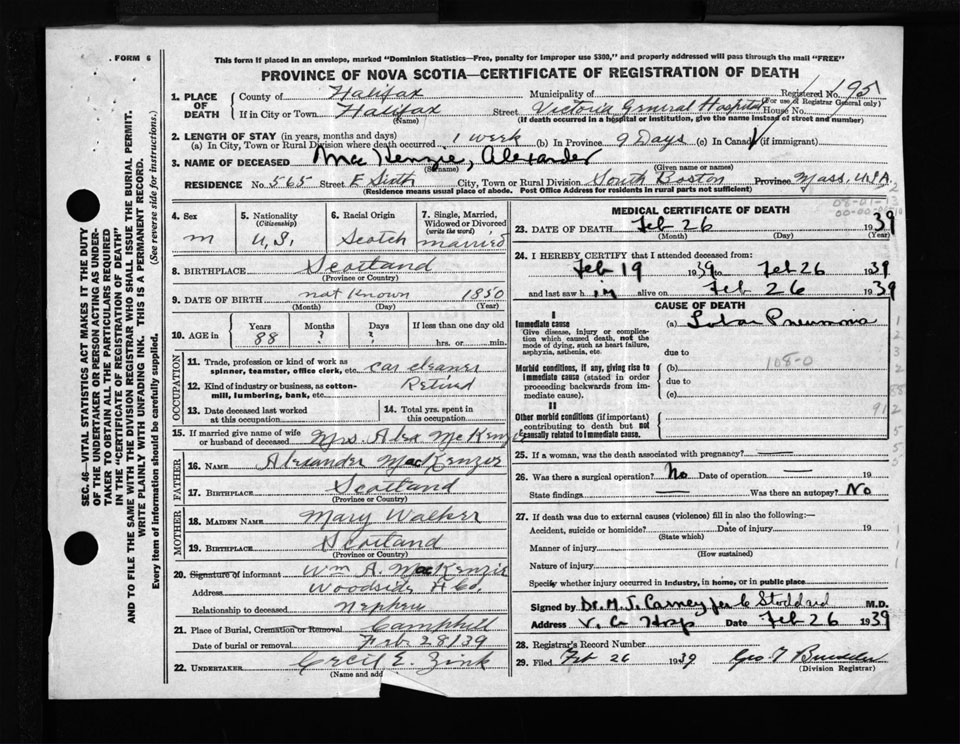 FORM 6
This form if placed in an envelope, marked "Dominion Statistics—Free, penalty for improper use $300," and properly addressed will pass through the mail "FREE"
PROVINCE OF NOVA SCOTIA—CERTIFICATE OF REGISTRATION OF DEATH
Registered No. 195
(For use of Registrar General only)
1. PLACE OF DEATH
County of Halifax Municipality of
If in City or Town Halifax Street Victoria General Hospital House No.
(Name) (If death occurred in a hospital or institution, give the name instead of street and number)
2. LENGTH OF STAY (in years, months and days)
(a) In City, Town or Rural Division where death occurred 1 week (b) In Province 9 Days (c) In Canada (if immigrant)
3. NAME OF DECEASED MacKenzie, Alexander
(Surname) (Given name or names)
RESIDENCE No. 565 Street E Sixth City, Town or Rural Division South Boston Province Mass, U.S.A.
(Residence means usual place of abode. Post Office Address for residents in rural parts not sufficient)
4. Sex
m
5. Nationality
(Citizenship)
U.S.
6. Racial Origin
Scotch
7. Single, Married, Widowed or Divorced
(write the word)
married
8. BIRTHPLACE Scotland
(Province or Country)
9. DATE OF BIRTH not Known 1850
(Month) (Day) (Year)
10. AGE in
Years Months Days If less than one day old
88 ? ? hrs. or min.
OCCUPATION
11. Trade, profession or kind of work as spinner, teamster, office clerk, etc. car cleaner
12. Kind of industry or business, as cotton-mill, lumbering, bank, etc. Retired
13. Date deceased last worked at this occupation
14. Total yrs. spent in this occupation
15. If married give name of wife or husband of deceased Mrs. Alex McKenzie
FATHER
16. NAME Alexander MacKenzie
17. BIRTHPLACE Scotland
(Province or Country)
MOTHER
18. MAIDEN NAME Mary Walker
19. BIRTHPLACE Scotland
(Province or Country)
20. Signature of informant Wm A. MacKenzie
Address Woodside H Co.
Relationship to deceased Nephew
21. Place of Burial, Cremation or Removal Camphill
Date of burial or removal Feb 28/39
22. UNDERTAKER Cecil E. Zink
(Name and add
MEDICAL CERTIFICATE OF DEATH
23. DATE OF DEATH Feb 26 1939
(Month) (Day) (Year)
24. I HEREBY CERTIFY that I attended deceased from:
Feb 19 1939 to Feb 26 1939
and last saw him alive on Feb 26 1939
CAUSE OF DEATH
I
Immediate cause
Give disease, injury or complication which caused death, not the mode of dying, such as heart failure, asphyxia, asthenia, etc.
(a) Lobar Pneumonia
due to
Morbid conditions, if any, giving rise to immediate cause (stated in order proceeding backwards from immediate cause).
(b) 108-0
due to
(c)
II
Other morbid conditions (if important) contributing to death but not causally related to immediate cause.
25. If a woman, was the death associated with pregnancy?
26. Was there a surgical operation? No Date of operation 19
State findings Was there an autopsy? No
27. If death was due to external causes (violence) fill in also the following:—
Accident, suicide or homicide? Date of injury 19
(State which)
Manner of injury
(How sustained)
Nature of injury
Specify whether injury occurred in industry, in home, or in public place
Signed by Dr. M. J. Carney per C Stoddard M.D.
Address V. G Hosp Date Feb 26 1939
28. Registrar's Record Number
29. Filed Feb 26 1939
(Division Registrar)
SEC. 46—VITAL STATISTICS ACT MAKES IT THE DUTY
OF THE UNDERTAKER OR PERSON ACTING AS UNDER-
TAKER TO OBTAIN ALL THE PARTICULARS REQUIRED
IN THE "CERTIFICATE OF REGISTRATION OF DEATH"
AND TO FILE THE SAME WITH THE DIVISION REGISTRAR WHO SHALL ISSUE THE BURIAL PERMIT.
WRITE PLAINLY WITH UNFADING INK. THIS IS A PERMANENT RECORD.
Every item of Information should be carefully supplied. (See reverse side for instructions.)